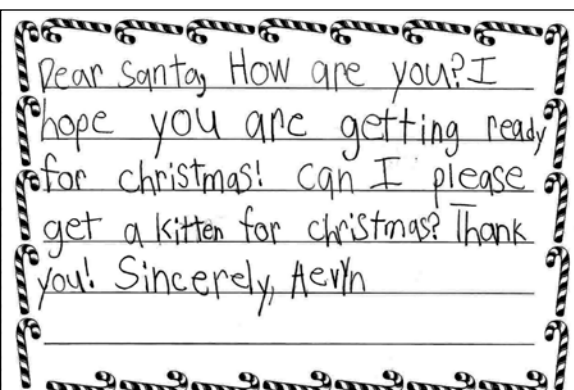 Dear Santa, How are you? I
hope you are getting ready
for christmas! can I please
get a kitten for christmas? Thank
you! Sincerely, Aevyn